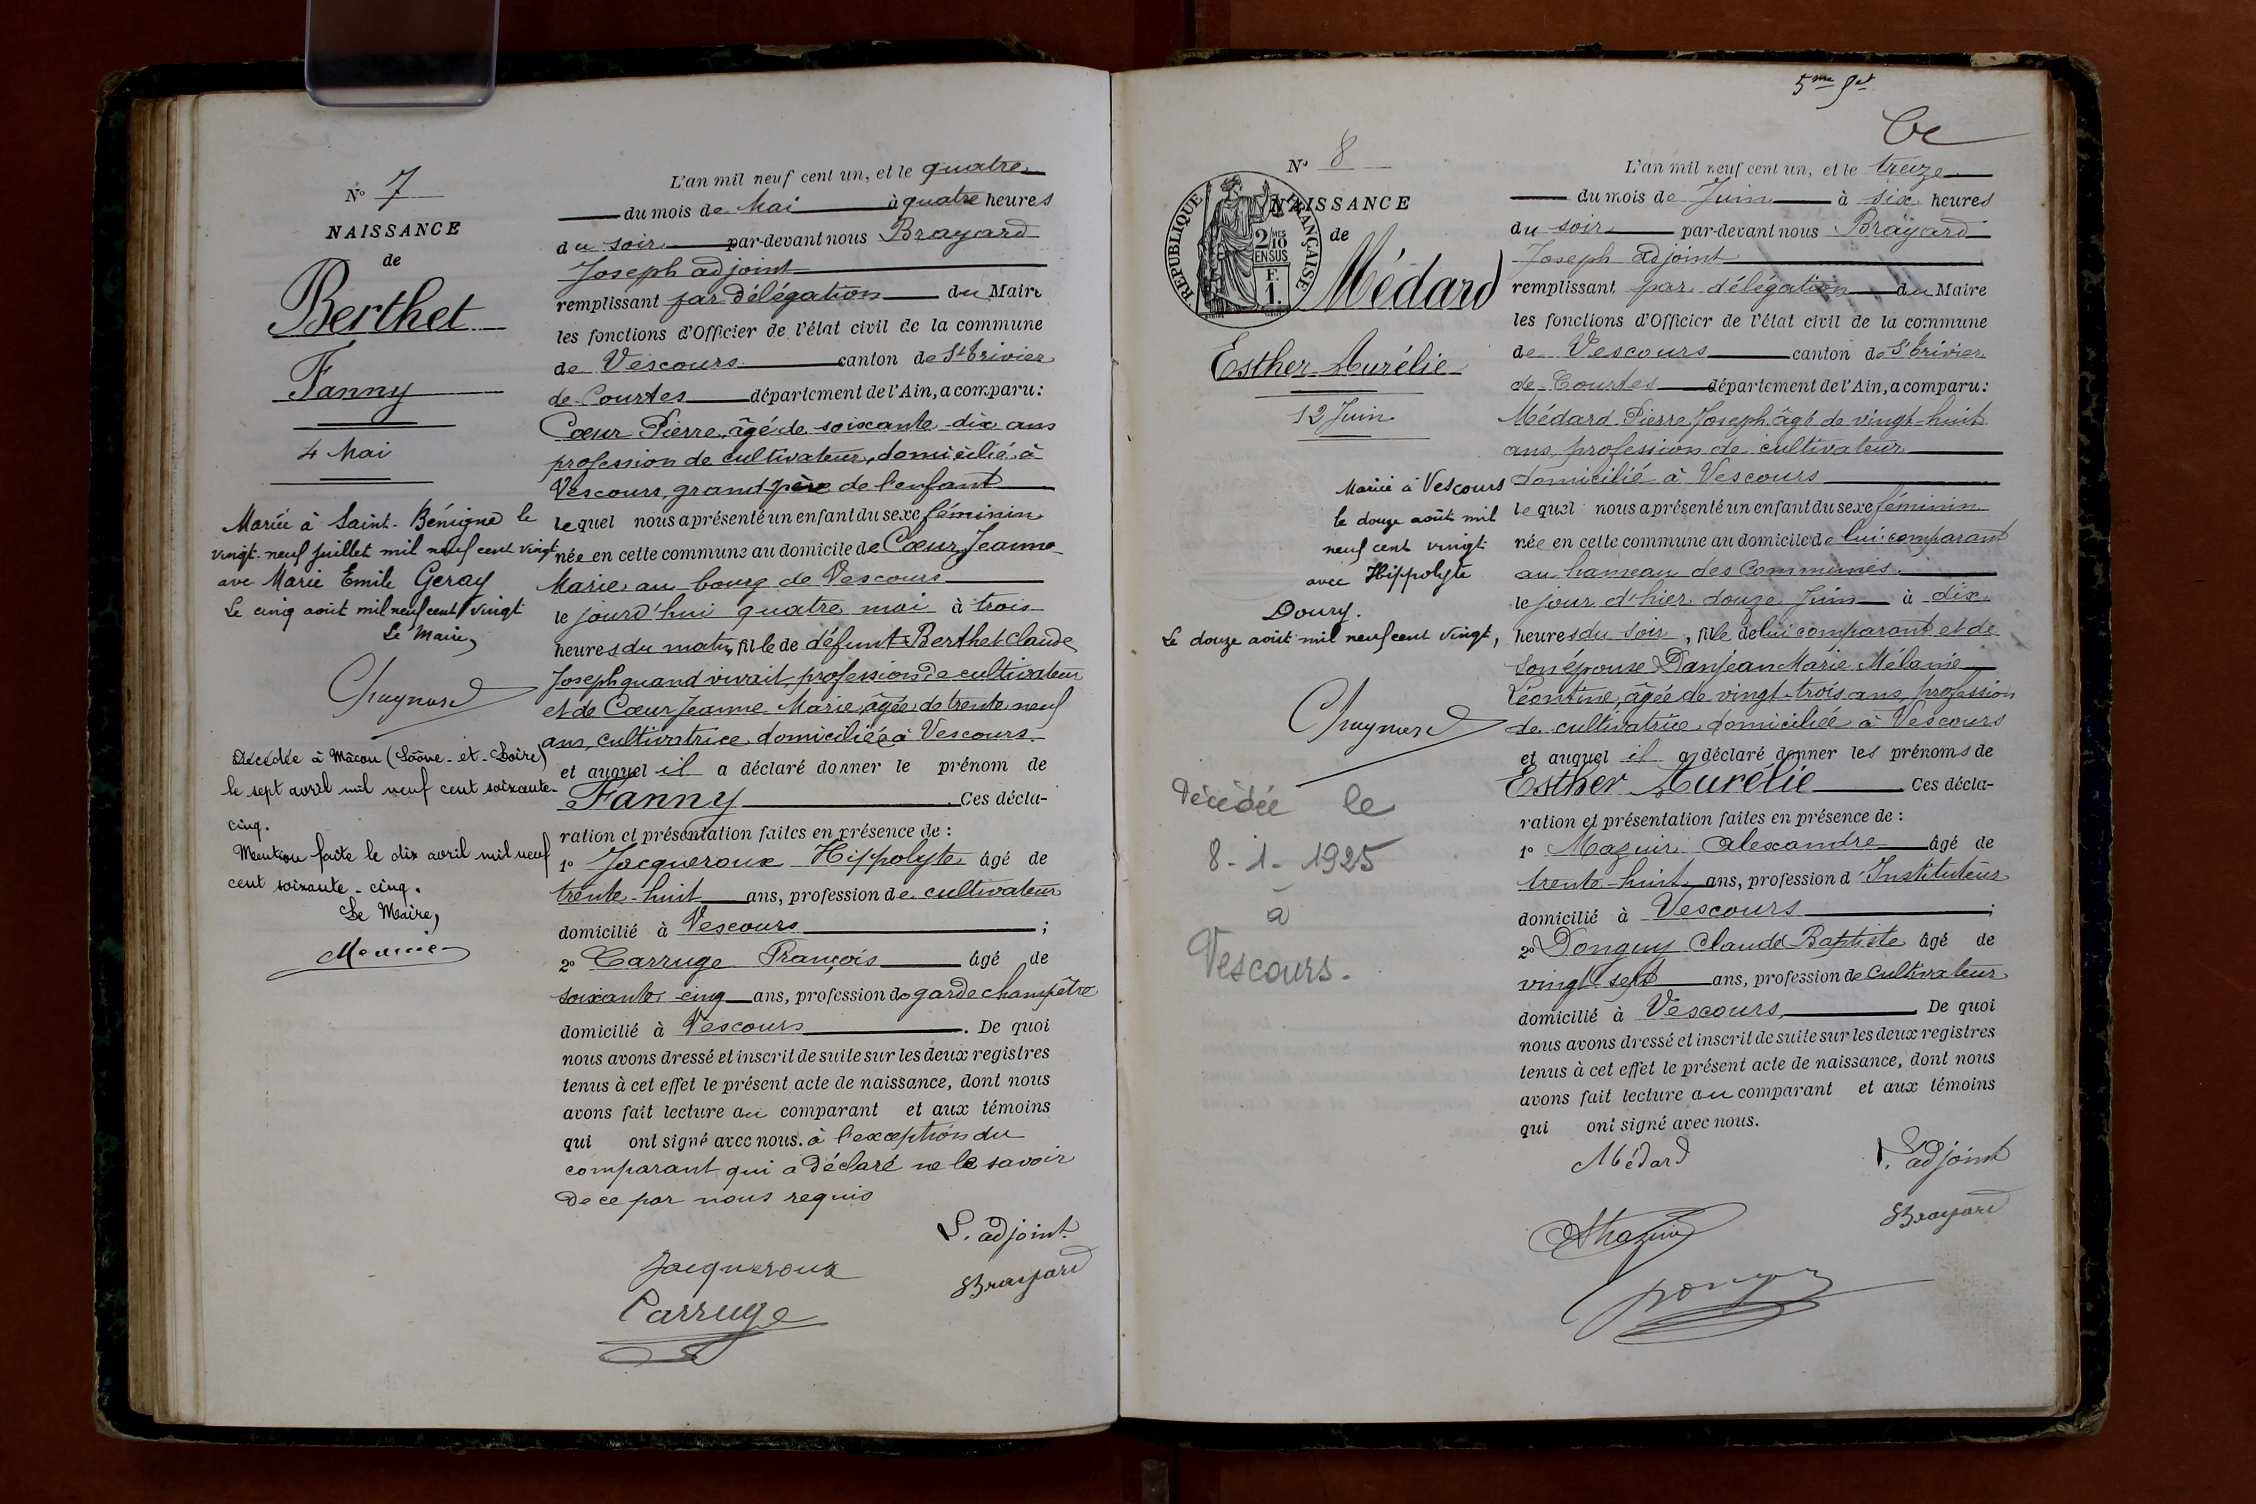 N° 7
NAISSANCE
de
Berthet
Fanny
4 Mai
Mariée à Saint-Bénigne le
vingt-neuf juillet mil neuf cent vingt
avec Marie Emile Geray
Le cinq août mil neuf cent vingt
Le Maire,
Décédée à Mâcon (Saône-et-Loire)
le sept avril mil neuf cent soixante-
cinq.
Mention faite le dix avril mil neuf
cent soixante-cinq.
Le Maire,
L'an mil neuf cent un, et le quatre
du mois de Mai à quatre heures
du soir par-devant nous Brayard
Joseph adjoint
remplissant par délégation du Maire
les fonctions d'Officier de l'état civil de la commune
de Vescours canton de St Trivier
de Courtes département de l'Ain, a comparu :
Cœur Pierre, âgé de soixante-dix ans
profession de cultivateur, domicilié à
Vescours, grand père de l'enfant
lequel nous a présenté un enfant du sexe féminin
née en cette commune au domicile de Cœur Jeanne
Marie au bourg de Vescours
le jourd'hui quatre mai à trois
heures du matin, fille de défunt Berthet Claude
Joseph quand vivait profession de cultivateur
et de Cœur Jeanne Marie, âgée de trente neuf
ans, cultivatrice domiciliée à Vescours
et auquel il a déclaré donner le prénom de
Fanny. Ces décla-
ration et présentation faites en présence de :
1° Jacqueroux Hippolyte âgé de
trente-huit ans, profession de cultivateur
domicilié à Vescours ;
2° Carruge François âgé de
soixante cinq ans, profession de garde champêtre
domicilié à Vescours. De quoi
nous avons dressé et inscrit de suite sur les deux registres
tenus à cet effet le présent acte de naissance, dont nous
avons fait lecture au comparant et aux témoins
qui ont signé avec nous. à l'exception du
comparant qui a déclaré ne le savoir
de ce par nous requis
L'adjoint
Jacqueroux
Brayard
Carruge
5me
N° 8
NAISSANCE
de
RÉPUBLIQUE FRANÇAISE
2/10MES
EN SUS
F.
1.
Médard
Esther Aurélie
12 Juin
Mariée à Vescours
le douze août mil
neuf cent vingt
avec Hippolyte
Doury.
Le douze août mil neuf cent vingt,
Décédée le
8-1-1925
à
Vescours.
L'an mil neuf cent un, et le treize
du mois de Juin à six heures
du soir par-devant nous Brayard
Joseph adjoint
remplissant par délégation du Maire
les fonctions d'Officier de l'état civil de la commune
de Vescours canton de St Trivier
de Courtes département de l'Ain, a comparu :
Médard Pierre Joseph âgé de vingt-huit
ans, profession de cultivateur
domicilié à Vescours
lequel nous a présenté un enfant du sexe féminin
née en cette commune au domicile de lui comparant
au hameau des Communes
le jour d'hier douze Juin à dix
heures du soir, fille de lui comparant et de
son épouse Danjean Marie Mélanie
Léontine, âgée de vingt-trois ans, profession
de cultivatrice domiciliée à Vescours
et auquel il a déclaré donner les prénoms de
Esther Aurélie Ces décla-
ration et présentation faites en présence de :
1° Mazuir Alexandre âgé de
trente-huit ans, profession d'Instituteur
domicilié à Vescours ;
2° Donguy Claude Baptiste âgé de
vingt-sept ans, profession de cultivateur
domicilié à Vescours. De quoi
nous avons dressé et inscrit de suite sur les deux registres
tenus à cet effet le présent acte de naissance, dont nous
avons fait lecture au comparant et aux témoins
qui ont signé avec nous.
Médard
L'adjoint
Brayard